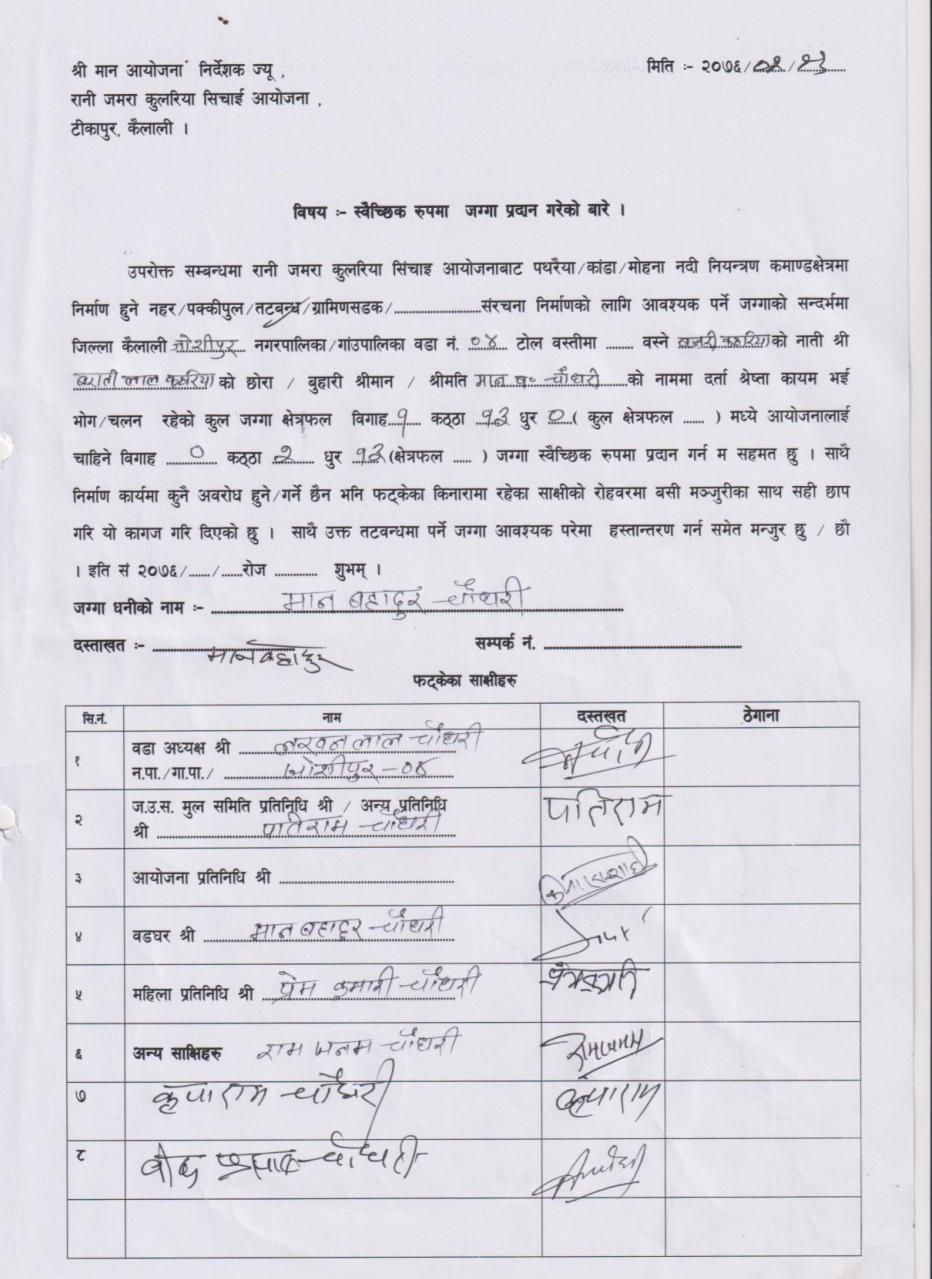 श्री मान आयोजना निर्देशक ज्यू ,
मिति :- २०७६/०२/२३
रानी जमरा कुलरिया सिचाई आयोजना ,
टीकापुर, कैलाली ।
विषय :- स्वैच्छिक रुपमा जग्गा प्रदान गरेको बारे ।
उपरोक्त सम्बन्धमा रानी जमरा कुलरिया सिंचाइ आयोजनाबाट पथरैया/कांडा/मोहना नदी नियन्त्रण कमाण्डक्षेत्रमा
निर्माण हुने नहर/पक्कीपुल/तटबन्ध/ग्रामिणसडक/.....................संरचना निर्माणको लागि आवश्यक पर्ने जग्गाको सन्दर्भमा
जिल्ला कैलाली जोशीपुर नगरपालिका/गांउपालिका वडा नं. ०४ टोल वस्तीमा ........ वस्ने कठरियाको नाती श्री
लाल कठरिया को छोरा / बुहारी श्रीमान / श्रीमति मान ब० चौधरी को नाममा दर्ता श्रेष्ता कायम भई
भोग/चलन रहेको कुल जग्गा क्षेत्रफल विगाह १ कठ्ठा १३ धुर ०( कुल क्षेत्रफल ...... ) मध्ये आयोजनालाई
चाहिने विगाह ० कठ्ठा २ धुर १३(क्षेत्रफल ..... ) जग्गा स्वैच्छिक रुपमा प्रदान गर्न म सहमत छु । साथै
निर्माण कार्यमा कुनै अवरोध हुने/गर्ने छैन भनि फट्केका किनारामा रहेका साक्षीको रोहवरमा बसी मञ्जुरीका साथ सही छाप
गरि यो कागज गरि दिएको छु । साथै उक्त तटवन्धमा पर्ने जग्गा आवश्यक परेमा हस्तान्तरण गर्न समेत मन्जुर छु / छौ
। इति सं २०७६/....../......रोज ............ शुभम् ।
जग्गा धनीको नाम :- मान बहादुर चौधरी
दस्ताखत :- मानबहादुर सम्पर्क नं. ..........................................
फट्केका साक्षीहरु
सि.नं. नाम दस्तखत ठेगाना
१ वडा अध्यक्ष श्री लाल चौधरी
न.पा./गा.पा./ जोशीपुर - ०४
२ ज.उ.स. मुल समिति प्रतिनिधि श्री / अन्य प्रतिनिधि
श्री पातिराम चौधरी पतिराम
३ आयोजना प्रतिनिधि श्री ....................................
४ वडघर श्री मान बहादुर चौधरी
५ महिला प्रतिनिधि श्री प्रेम कुमारी चौधरी
६ अन्य साक्षिहरु राम जनम चौधरी रामजनम
७ कृपाराम चौधरी कृपाराम
८ चौधरी